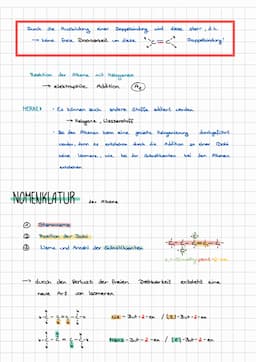 Durch die Ausbildung einer Doppelbindung wird diese starr, d.h.
→ keine freie Drehbarkeit um diese C=C Doppelbindung!
Reaktion der Alkene mit Halogenen
→ elektrophile Addition
MERKE:
• Es können auch andere Stoffe addiert werden
→ Halogene, Wasserstoff
• Bei den Alkenen kann eine gezielte Halogenierung durchgeführt
werden, denn es entstehen durch die Addition an einer Dobi
keine Isomere, wie bei der Substitution bei den Alkanen
entstehen.
NOMENKLATUR der Alkene
① Stammname
② Position der Dobi
③ Name und Anzahl der Substituenten
→ durch den Verlust der freien Drehbarkeit entsteht eine
neue Art von Isomeren
cis-But-2-en / (Z)-But-2-en
trans-But-2-en / (E)-But-2-en